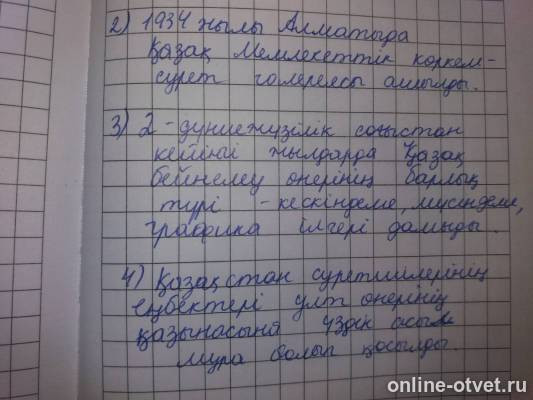 2) 1934 жылы Алматыда
Қазақ Мемлекеттік көркем-
сурет галереясы ашылды.
3) 2-дүниежүзілік соғыстан
кейінгі жылдарда Қазақ
бейнелеу өнерінің барлық
түрі - кескіндеме, мүсіндеме,
графика ілгері дамыды.
4) Қазақстан суретшилерінің
еңбектері ұлт өнерінің
қазынасына үздік асыл
мұра болып қосылды.
online-otvet.ru